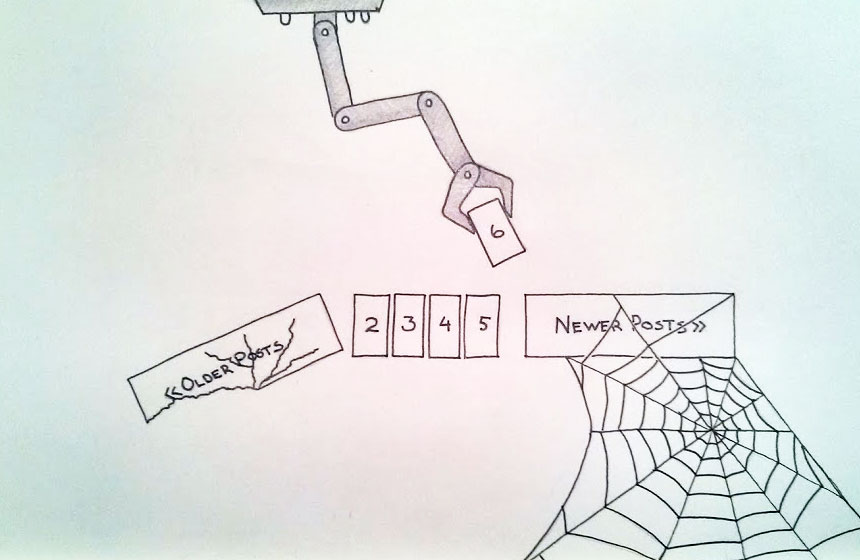 6
«OLDER POSTS
2 3 4 5
NEWER POSTS»